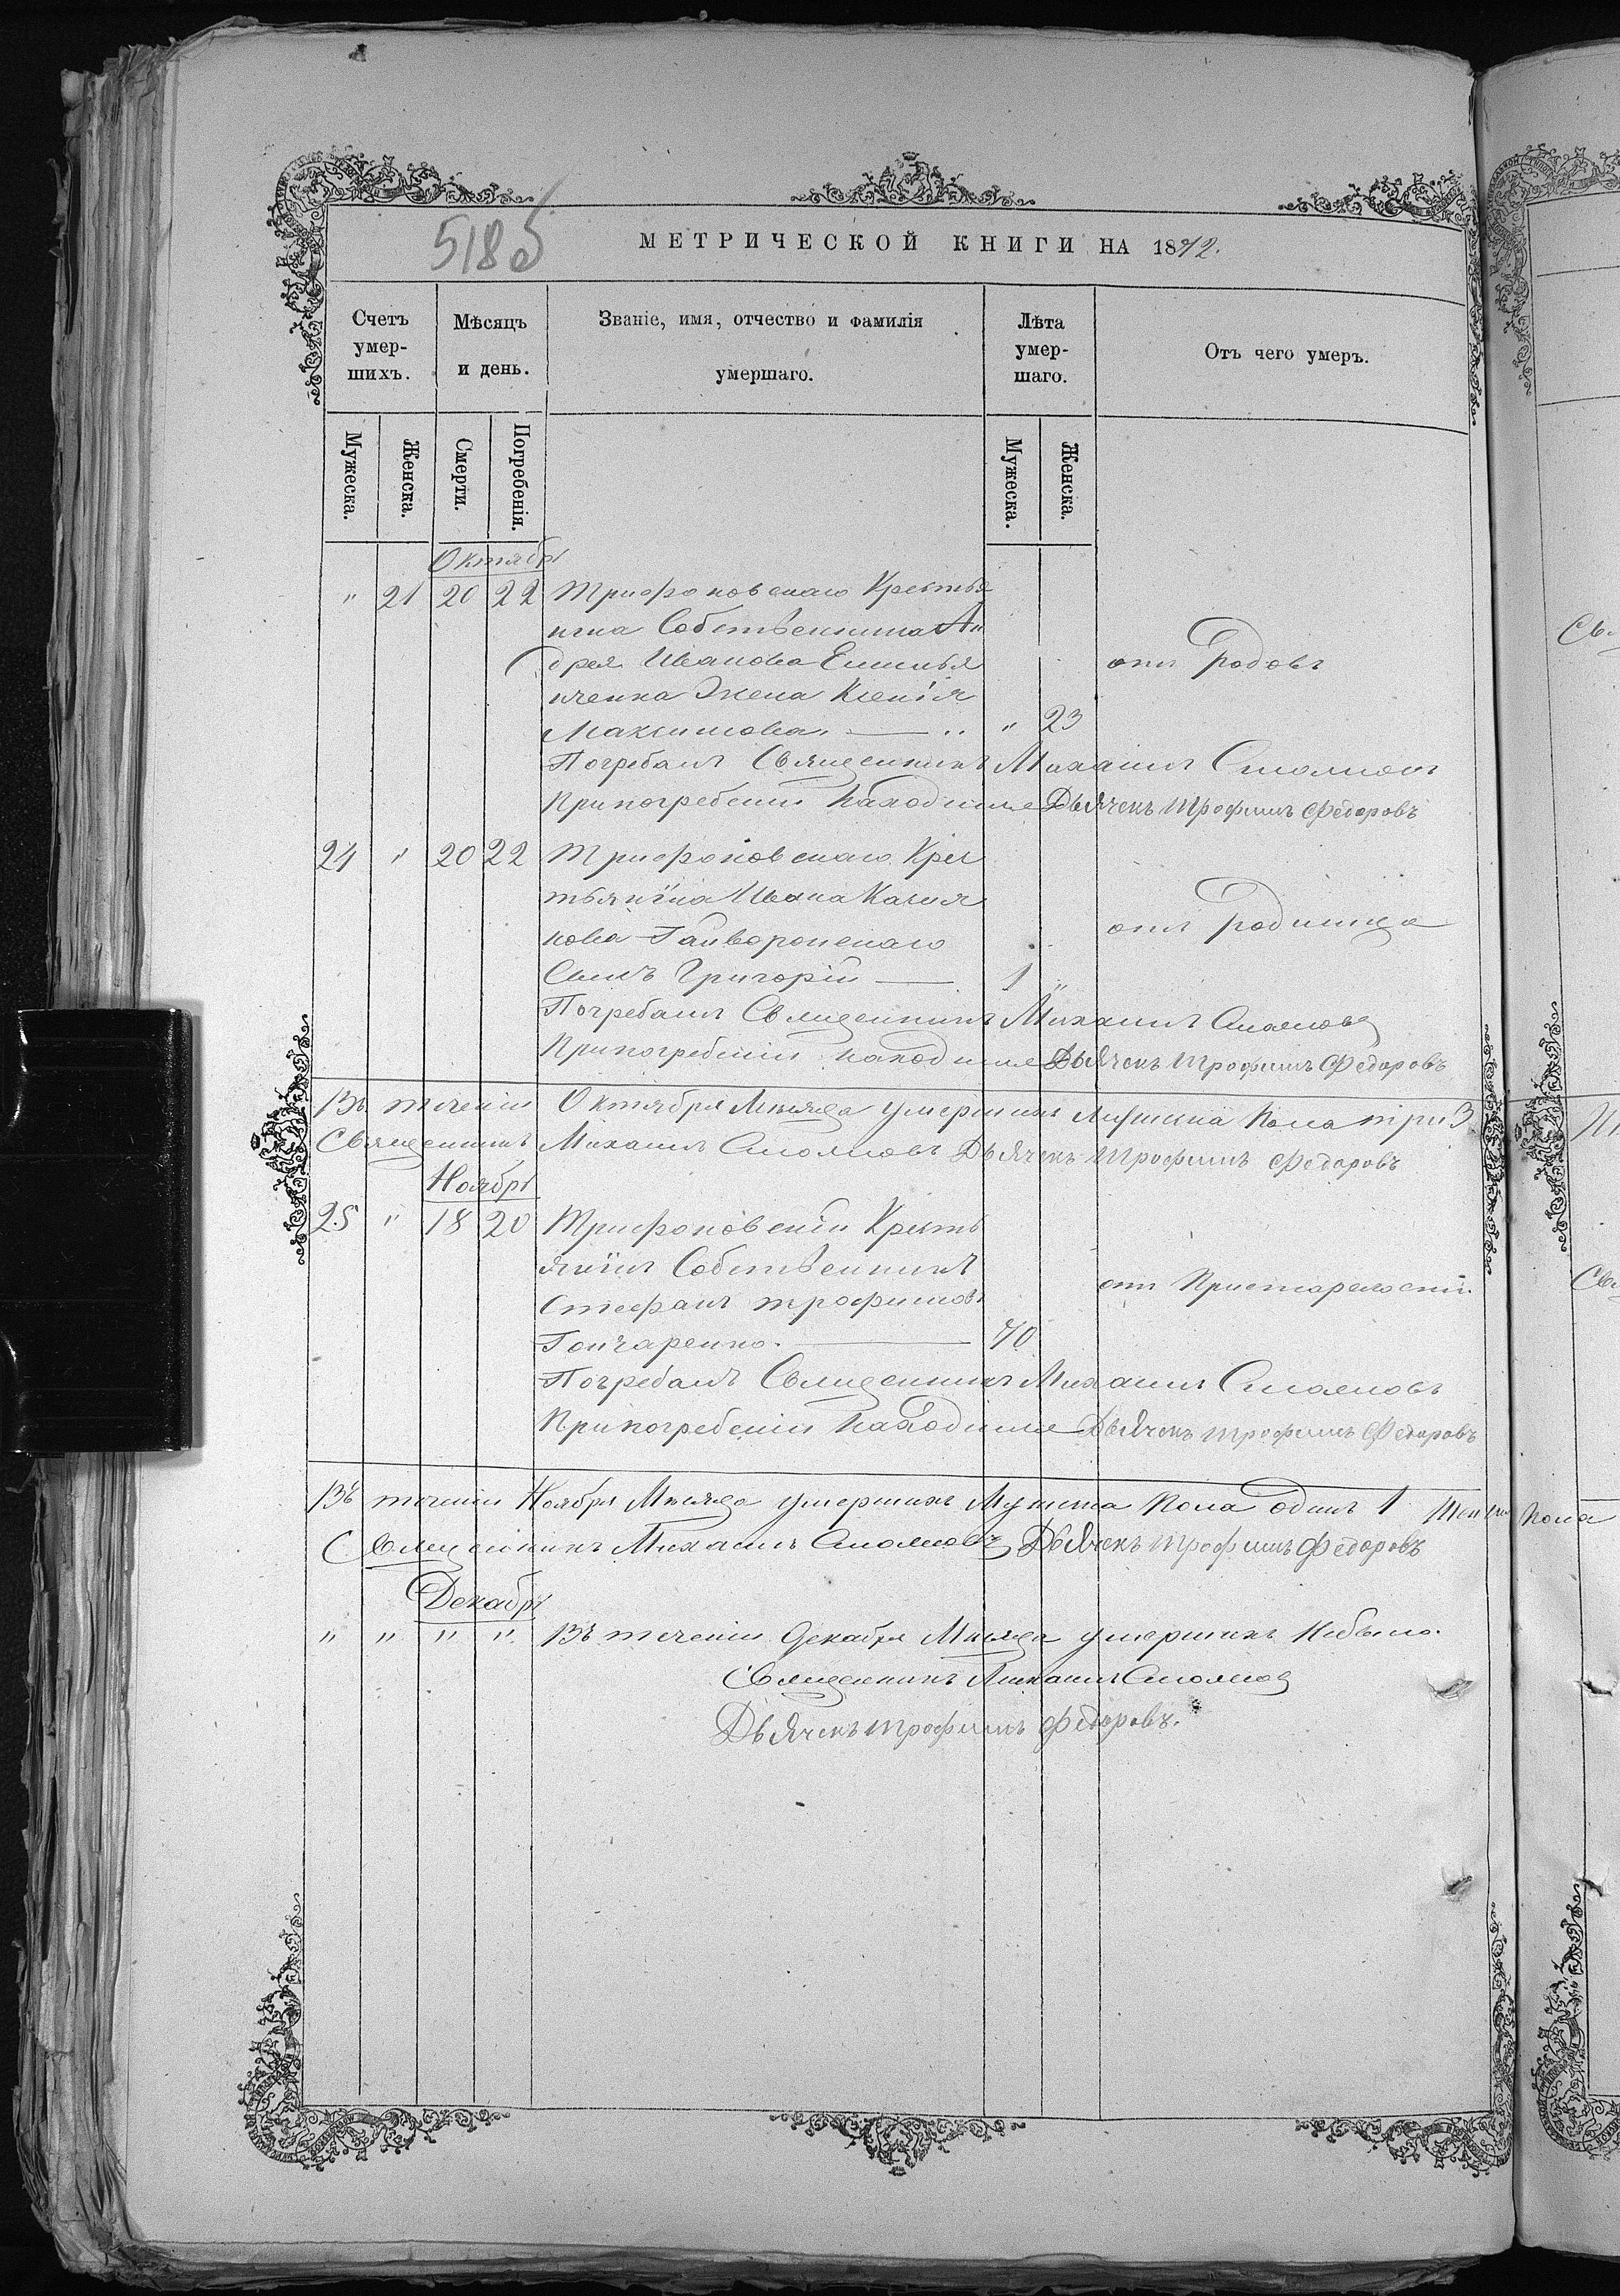 518б
МЕТРИЧЕСКОЙ КНИГИ НА 1872.
Счетъ умер-шихъ.
Мѣсяцъ и день.
Званіе, имя, отчество и фамилія умершаго.
Лѣта умер-шаго.
Отъ чего умеръ.
Мужеска. Женска. Смерти. Погребенія. Мужеска. Женска.
Октябрь
" 21 20 22 Трифоновскаго Крестья
нина Собственника Ан
дрея Иванова Емилья отъ Родовъ
нченка Жена Ксенія
Максимова. " 23
Погребалъ Священникъ Михаилъ
При погребеніи находился Дьячекъ Трофимъ Федоровъ
24 " 20 22 Трифоновскаго Крес
тьянина Ивана
нова Гайворонскаго отъ родимца
Сынъ Григорій 1 "
Погребалъ Священникъ Михаилъ
При погребеніи находился Дьячекъ Трофимъ Федоровъ
Въ теченіи Октября Мѣсяца умершихъ Мужеска Пола три 3
Священникъ Михаилъ Дьячекъ Трофимъ Федоровъ
Ноябрь
25 " 18 20 Трифоновскій Кресть
янинъ Собственникъ
Стефанъ Трофимовъ отъ Престарелости.
Гончаренко. 70
Погребалъ Священникъ Михаилъ
При погребеніи находился Дьячекъ Трофимъ Федоровъ
Въ теченіи Ноября Мѣсяца умершихъ Мужеска Пола одинъ 1 Пола
Священникъ Михаилъ Дьячекъ Трофимъ Федоровъ
Декабрь
" " " " Въ теченіи Декабря Мѣсяца умершихъ Небыло.
Священникъ Михаилъ
Дьячекъ Трофимъ Федоровъ.